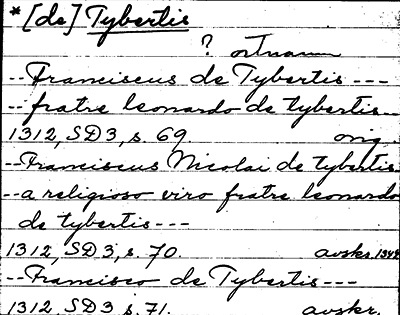 *[de] Tybertis
? ortnamn
-- Franciscus de Tybertis ---
-- fratre leonardo de tybertis --
1312, SD 3, s. 69 orig.
-- Franciscus Nicolai de tybertis
-- a religioso viro fratre leonardo
de tybertis ---
1312, SD 3, s. 70. avskr. 1344
-- Francisco de Tybertis ---
1312, SD 3 s. 71. avskr.